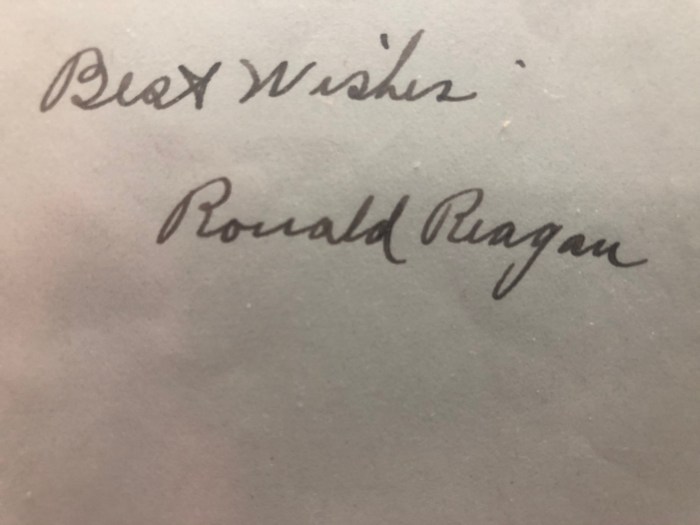 Best Wishes
Ronald Reagan